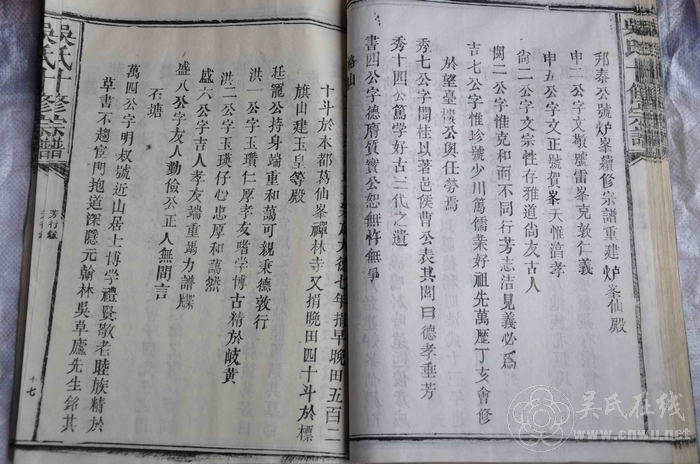 吳氏十修宗譜
邦泰公號炉峯續修宗譜重建炉峯仙殿
申二公字文敬號雷峯克敦仁義
申五公字文正號賀峯天惟篤孝
尙二公字文宗性存雅道尙友古人
閏二公字惟克和而不同行芳志洁見義必爲
吉七公字惟珍號少川萬儒業好祖先萬歷丁亥會修
於望臺樓公與任勞焉
秀七公字閒桂以著邑侯曹公表其閭曰德孝垂芳
秀十四公篤學好古三代之遺
書四公字德隋質實公恕無忤無爭
十斗於本都葛仙峯禪林寺又捐晚田四十斗於標
旗山建玉皇等殿
廷寵公持身端重和藹可親秉德敦行
洪一公字玉瓚仁厚孝友嗜學博古精於岐黄
洪二公字玉瑛仔心忠厚和藹然
盛六公字吉人孝友端重竭力譜牒
盛八公字友人勤儉公正人無間言
石塘
萬四公字明叔號近山居士博學禮賢敬老睦族精於
草書不趨宦門抱道深隱元翰林吳草廬先生銘其
吳氏十修宗譜
十七
吴氏在线
www.cnwu.net